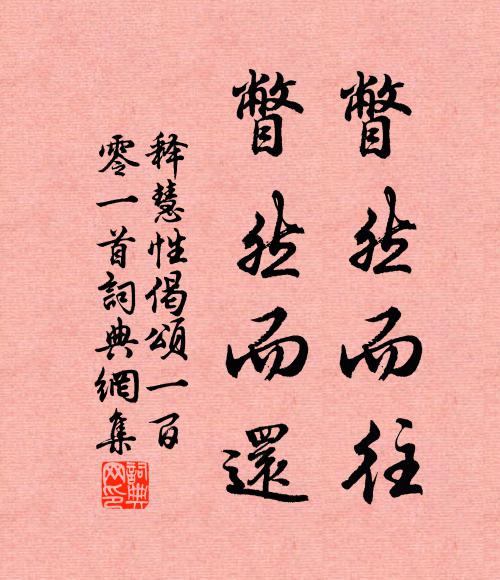 瞥然而往
瞥然而還
释慧性偈頌一百
零一首詞典網集
詞典
网印